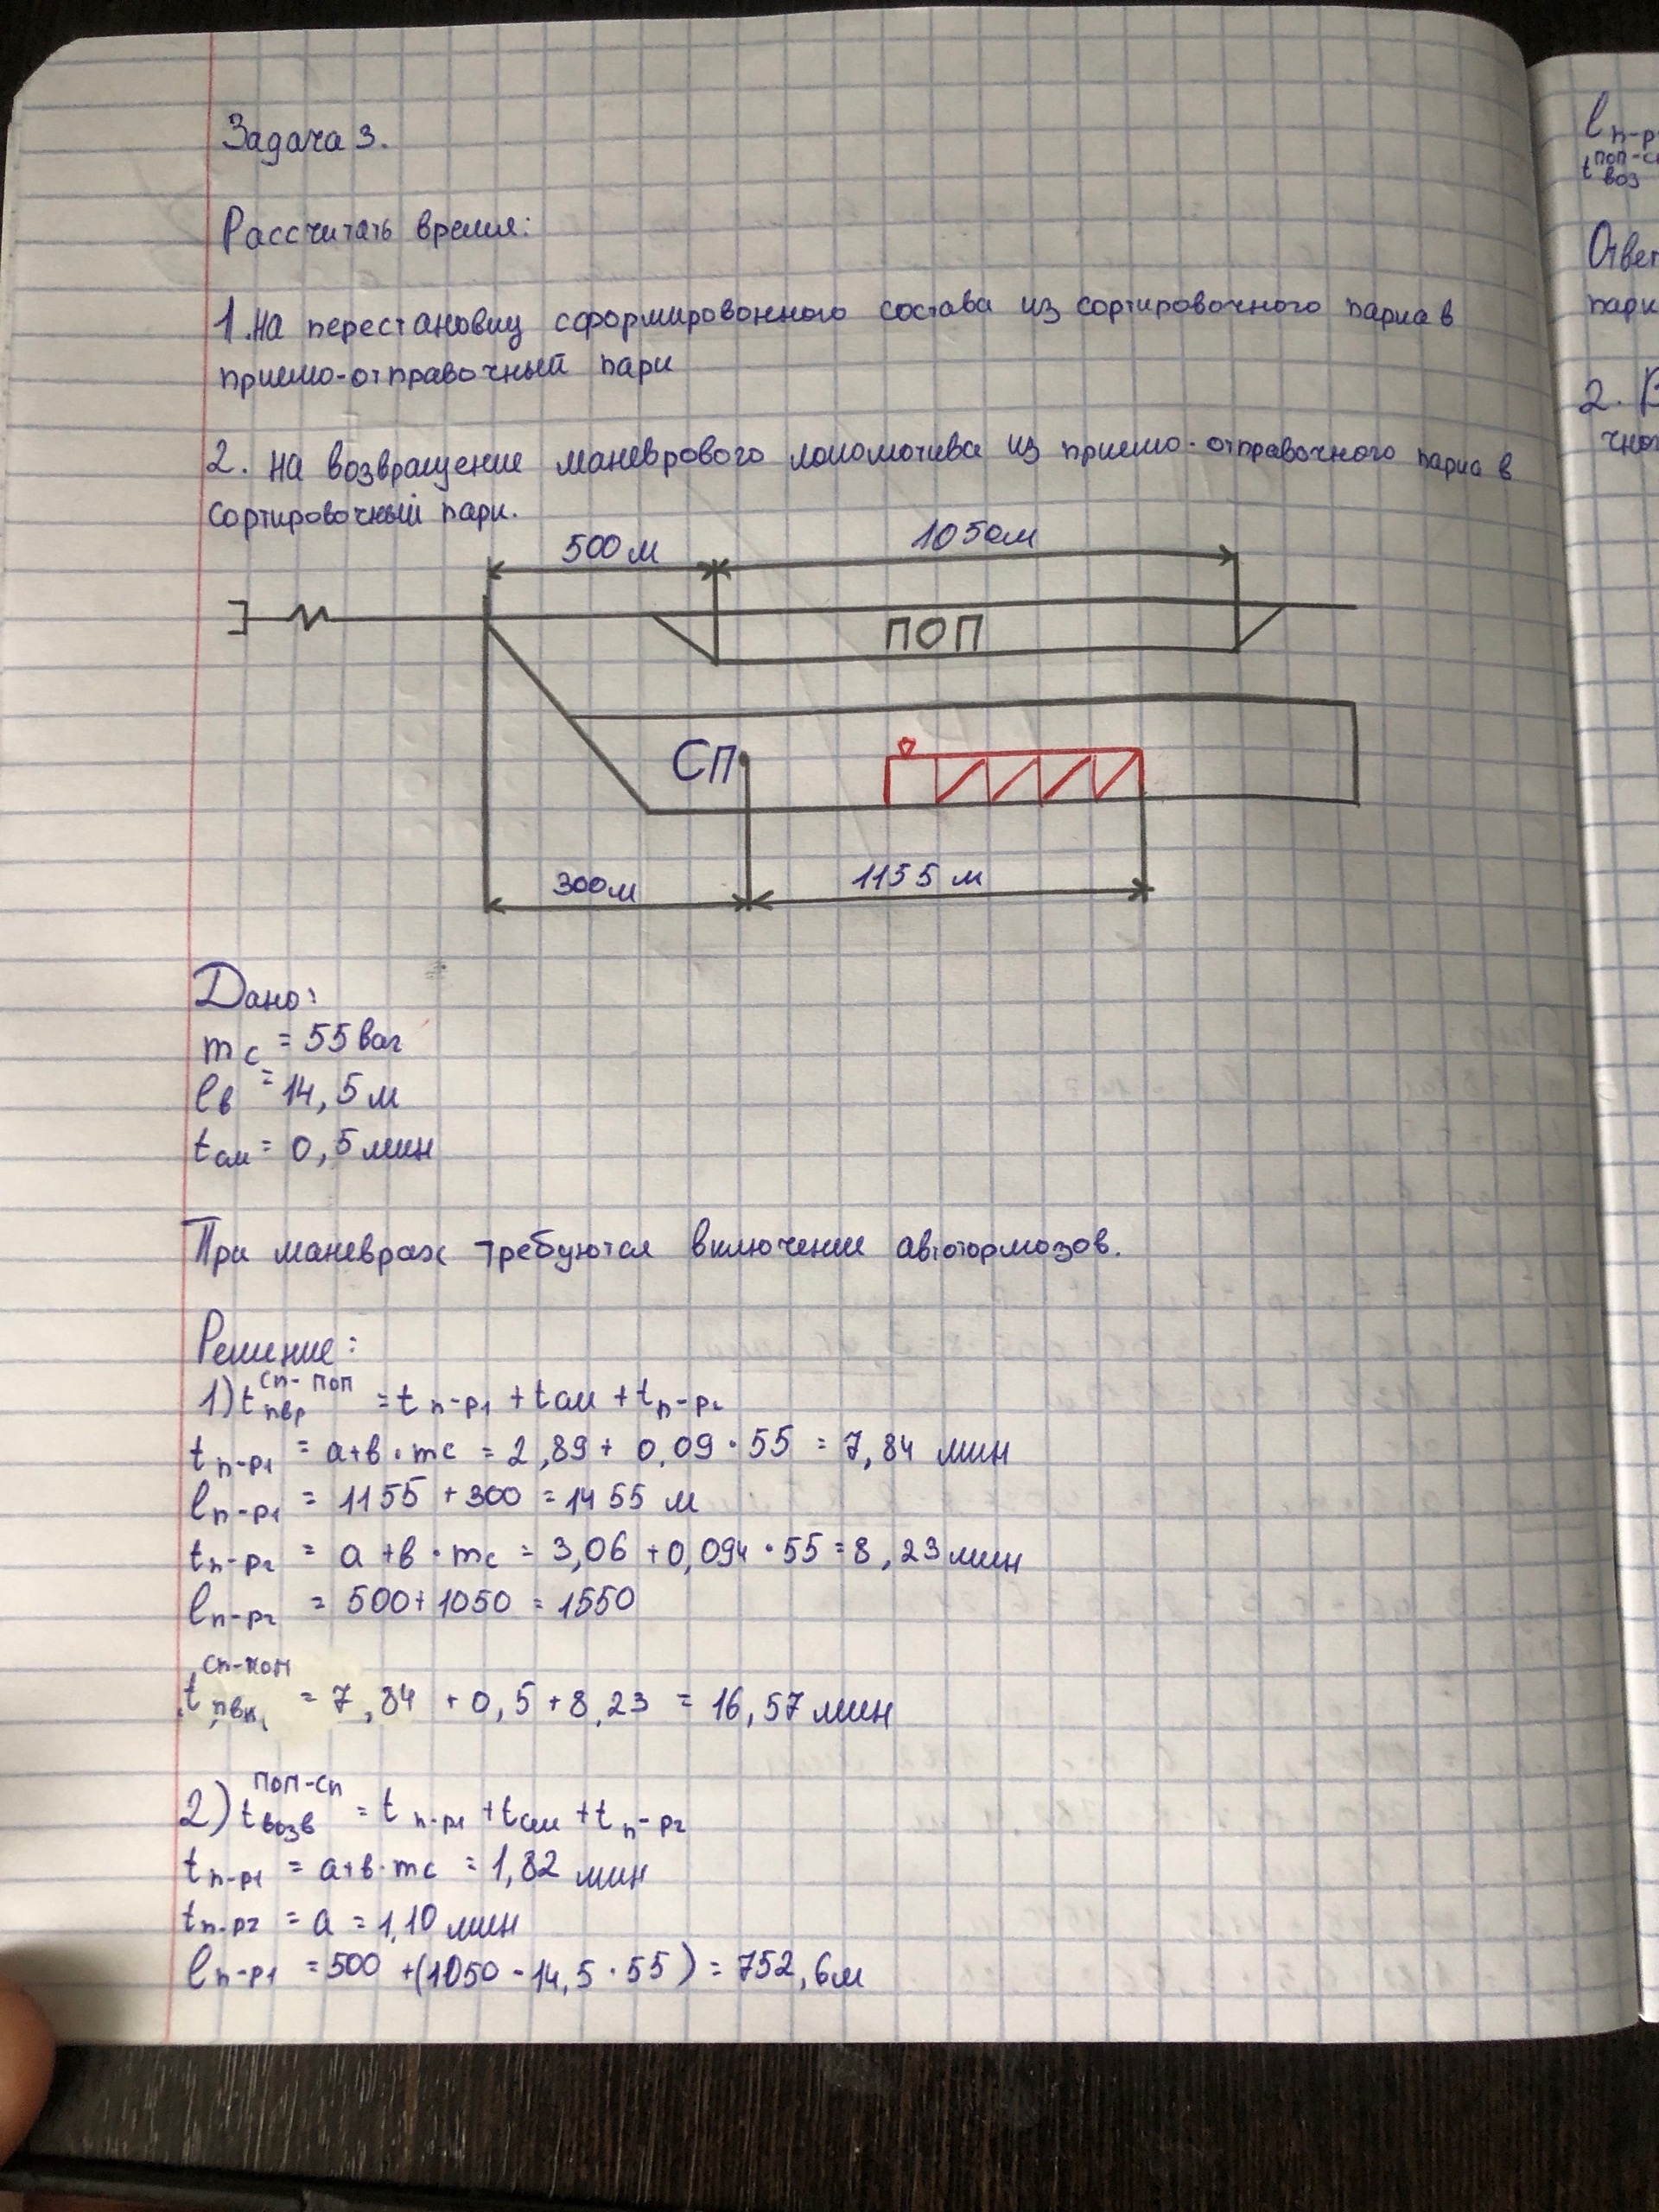 Задача 3.
Рассчитать время:
1. На перестановку сформированного состава из сортировочного парка в
приемо-отправочный парк
2. На возвращение маневрового локомотива из приемо-отправочного парка в
сортировочный парк.
500 м
1050 м
ПОП
СП
300 м
1155 м
Дано:
mс = 55 ваг
lв = 14,5 м
tсм = 0,5 мин
При маневрах требуются включение автотормозов.
Решение:
1) tпвр сп-поп = tп-р1 + tсм + tп-р2
tп-р1 = a+в·mс = 2,89 + 0,09 · 55 = 7,84 мин
lп-р1 = 1155 + 300 = 1455 м
tп-р2 = a + в · mс = 3,06 + 0,094 · 55 = 8,23 мин
lп-р2 = 500 + 1050 = 1550
t = 7,84 + 0,5 + 8,23 = 16,57 мин
2) tвозв поп-сп = tп-р1 + tсм + tп-р2
tп-р1 = a+в·mс = 1,82 мин
tп-р2 = a = 1,10 мин
lп-р1 = 500 + (1050 - 14,5 · 55) = 752,6 м
lп-р
tвоз поп-с
2. В